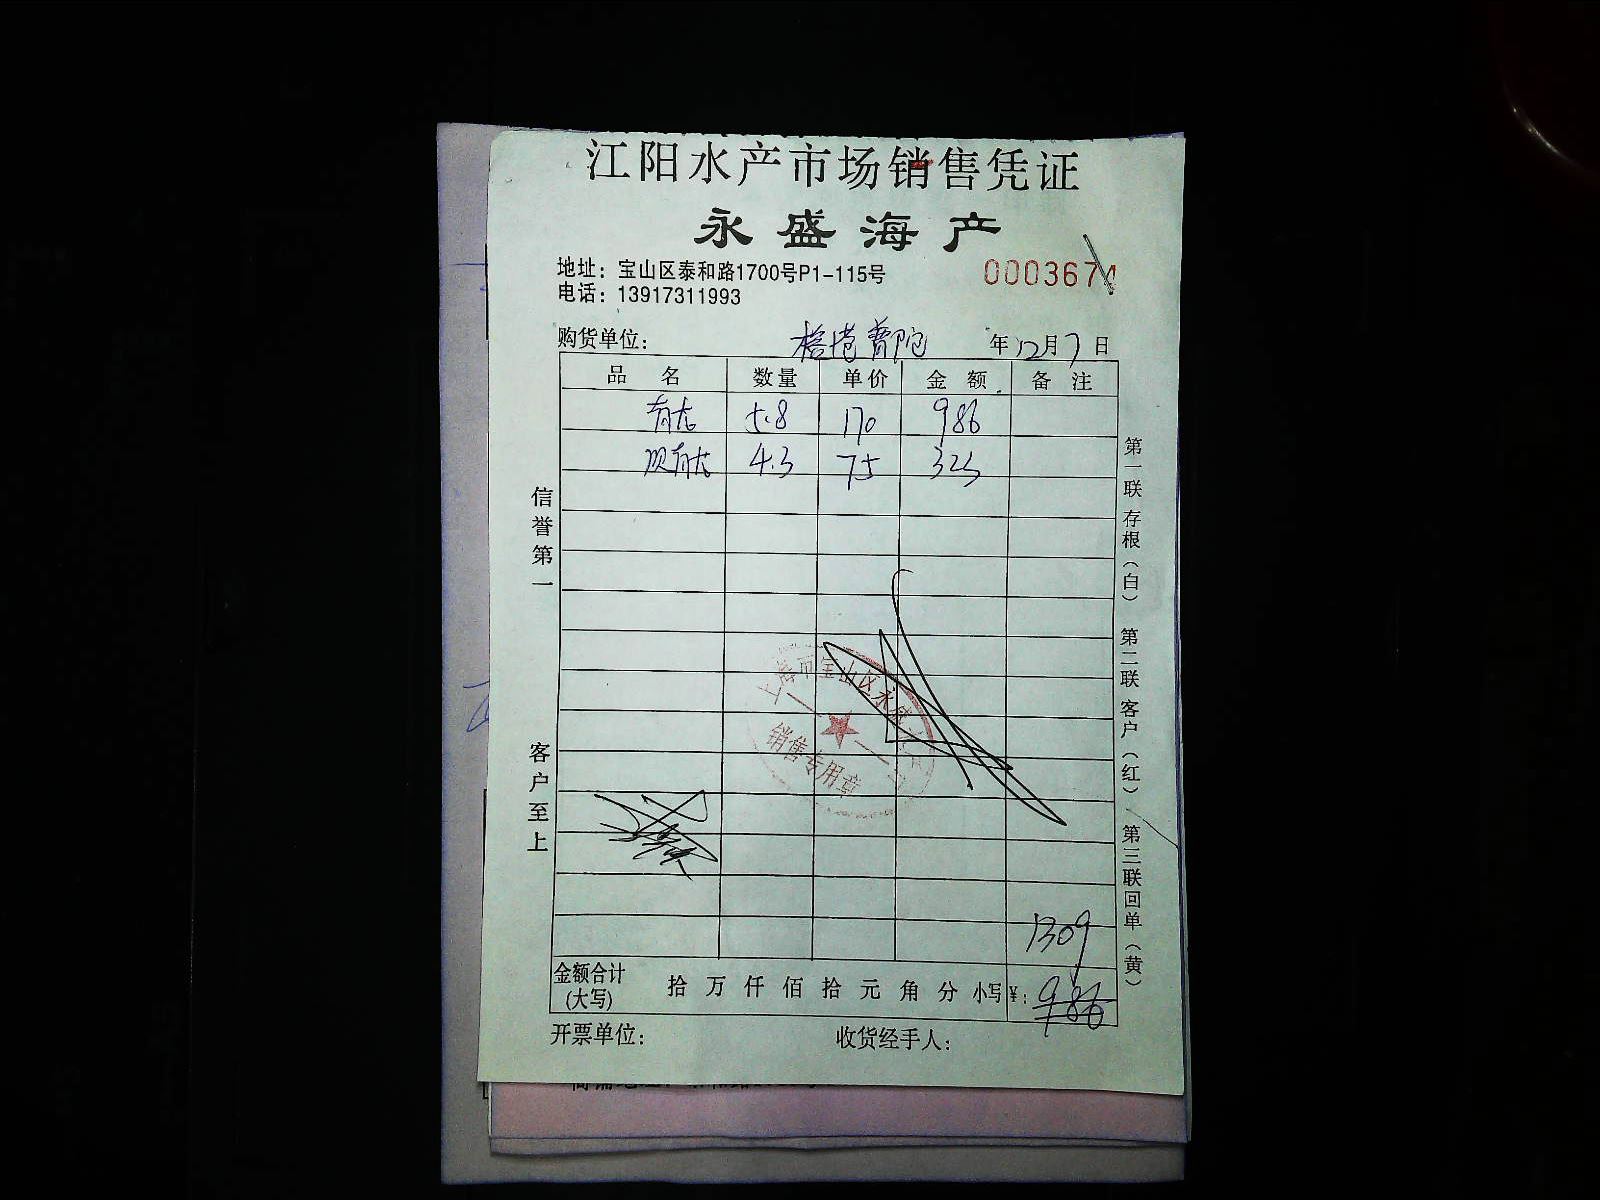 江阳水产市场销售凭证
永盛海产
地址：宝山区泰和路1700号P1-115号
0003674
电话：13917311993
购货单位：
普陀 年12月7日
品 名 数量 单价 金额 备注
青龙 5.8 170 986
青龙 4.3 75 323
信誉第一
客户至上
第一联 存根（白） 第二联 客户（红） 第三联 回单（黄）
上海市宝山区永盛
销售专用章
1309
金额合计(大写) 拾 万 仟 佰 拾 元 角 分 小写¥：986
开票单位： 收货经手人：